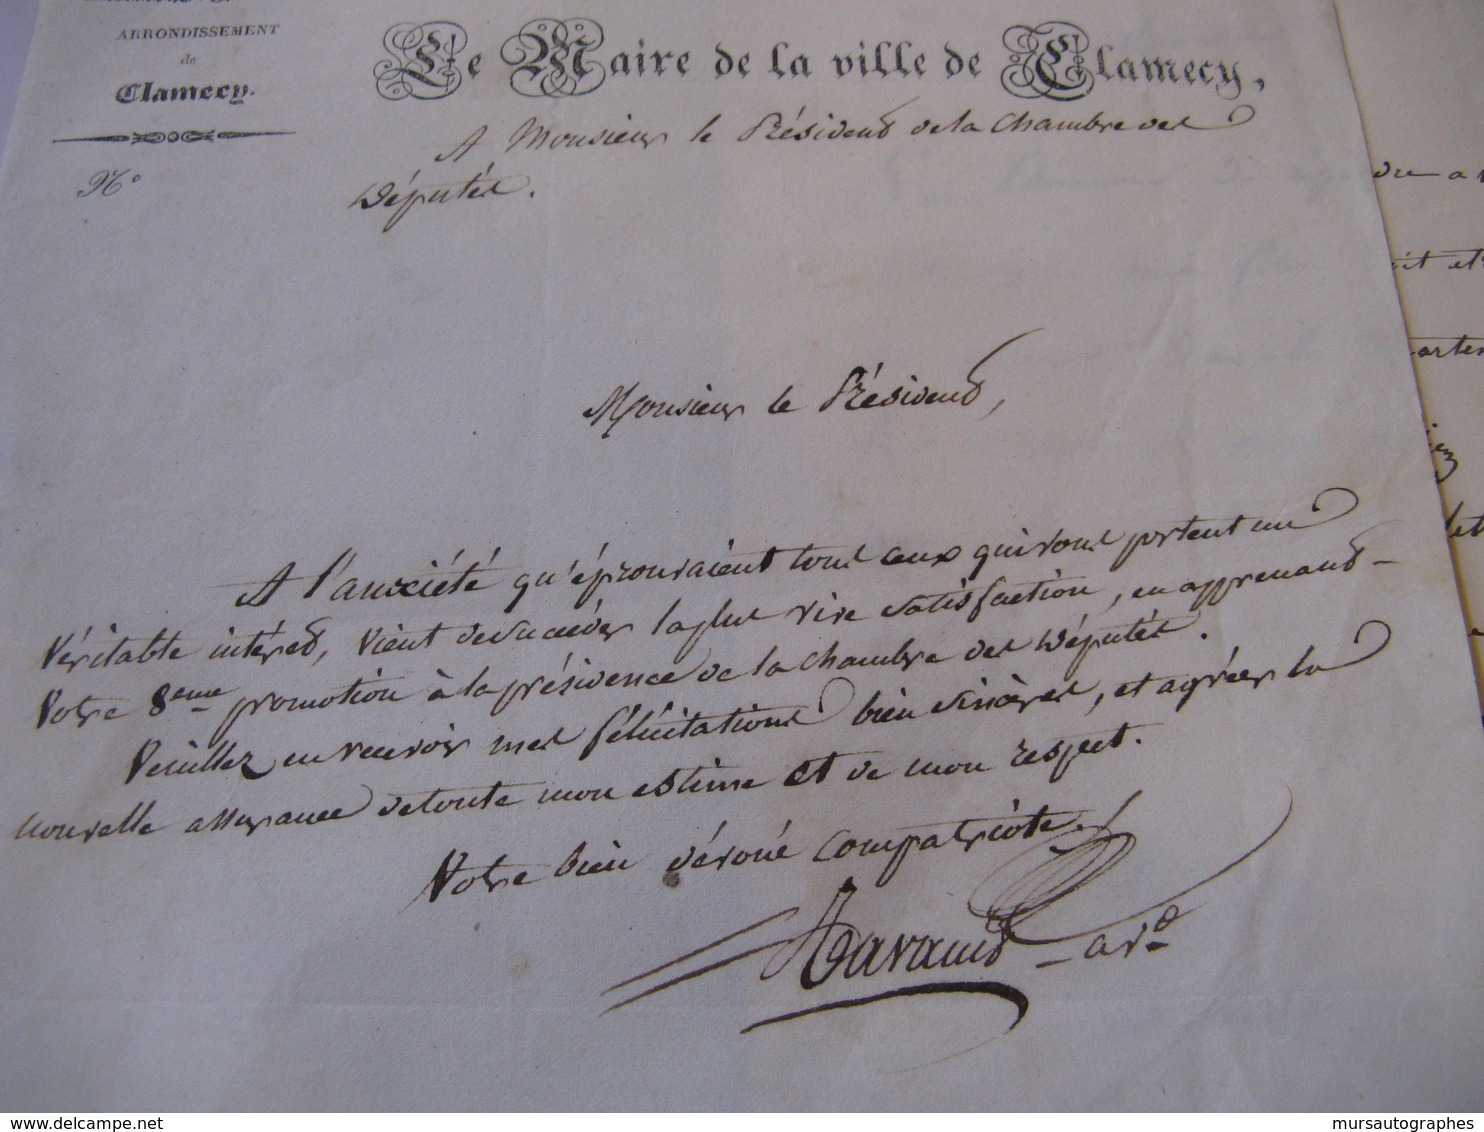 ARRONDISSEMENT
de
Clamecy.
N°
Le Maire de la ville de Clamecy,
A Monsieur le Président de la Chambre des
Députés.
Monsieur le Président,
A l'anxiété qu'éprouvaient tous ceux qui vous portent un
Véritable intérêt, vient de succéder la plus vive satisfaction, en apprenant
Votre 8eme promotion à la présidence de la Chambre des Députés.
Veuillez en recevoir mes félicitations bien sincères, et agréer la
nouvelle assurance de toute mon estime et de mon respect.
Votre bien dévoué compatriote,
avt
dre a
it et
arten
let
delcampe.net
mursautographes